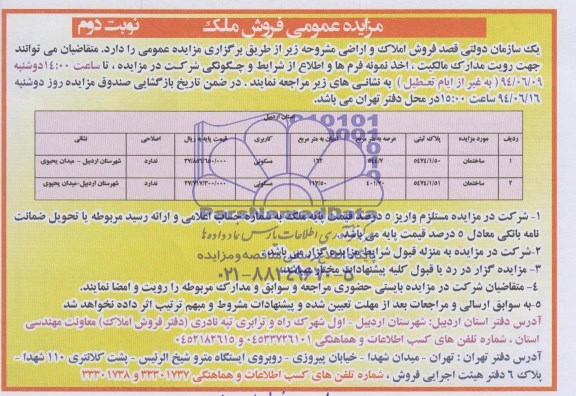 مزایده عمومی فروش ملک
نوبت دوم
یک سازمان دولتی قصد فروش املاک و اراضی مشروحه زیر از طریق برگزاری مزایده عمومی را دارد. متقاضیان می توانند
جهت رویت مدارک مالکیت ، اخذ نمونه فرم ها و اطلاع از شرایط و چگونگی شرکت در مزایده ، تا ساعت ۱۴:۰۰ دوشنبه
۹۴/۰۶/۰۹ ( به غیر از ایام تعطیل ) به نشانی های زیر مراجعه نمایند . در ضمن تاریخ بازگشایی صندوق مزایده روز دوشنبه
۹۴/۰۶/۱۶ ساعت ۱۵:۰۰ در محل دفتر تهران می باشد.
استان اردبیل
ردیف مورد مزایده پلاک ثبتی عرصه به متر مربع اعیان به متر مربع کاربری قیمت پایه به ریال اصلاحی نشانی
۱ ساختمان ۵۴۷۴/۱/۵۰ مسکونی ندارد شهرستان اردبیل - میدان یحیوی
۲ ساختمان ۵۴۷۴/۱/۵۱ ۴۰۱/۷۰ مسکونی ندارد شهرستان اردبیل-میدان یحیوی
۱- شرکت در مزایده مستلزم واریز ۵ درصد قیمت پایه ملک به شماره حساب اعلامی و ارائه رسید مربوطه یا تحویل ضمانت
نامه بانکی معادل ۵ درصد قیمت پایه می باشد.
۲-شرکت در مزایده به منزله قبول شرایط مزایده گزار می باشد.
۳- مزایده گزار در رد یا قبول کلیه پیشنهادات مختار میباشد.
۴- متقاضیان شرکت در مزایده بایستی حضوری مراجعه و سوابق و مدارک مربوطه را رویت و امضا نمایند.
۵-به سوابق ارسالی و مراجعات بعد از مهلت تعیین شده و پیشنهادات مشروط و مبهم ترتیب اثر داده نخواهد شد
آدرس دفتر استان اردبیل: شهرستان اردبیل - اول شهرک راه و ترابری تپه نادری (دفتر فروش املاک) معاونت مهندسی
استان ، شماره تلفن های کسب اطلاعات و هماهنگی ۰۴۵۳۳۷۲۶۱۰۱ و ۰۴۵۲۱۸۲۶۱۵
آدرس دفتر تهران : تهران - میدان شهدا - خیابان پیروزی - روبروی ایستگاه مترو شیخ الرئیس - پشت کلانتری ۱۱۰ شهدا -
پلاک ۶ دفتر هیئت اجرایی فروش ، شماره تلفن های کسب اطلاعات و هماهنگی ۳۳۳۰۱۷۳۷ و ۳۳۳۰۱۷۳۸